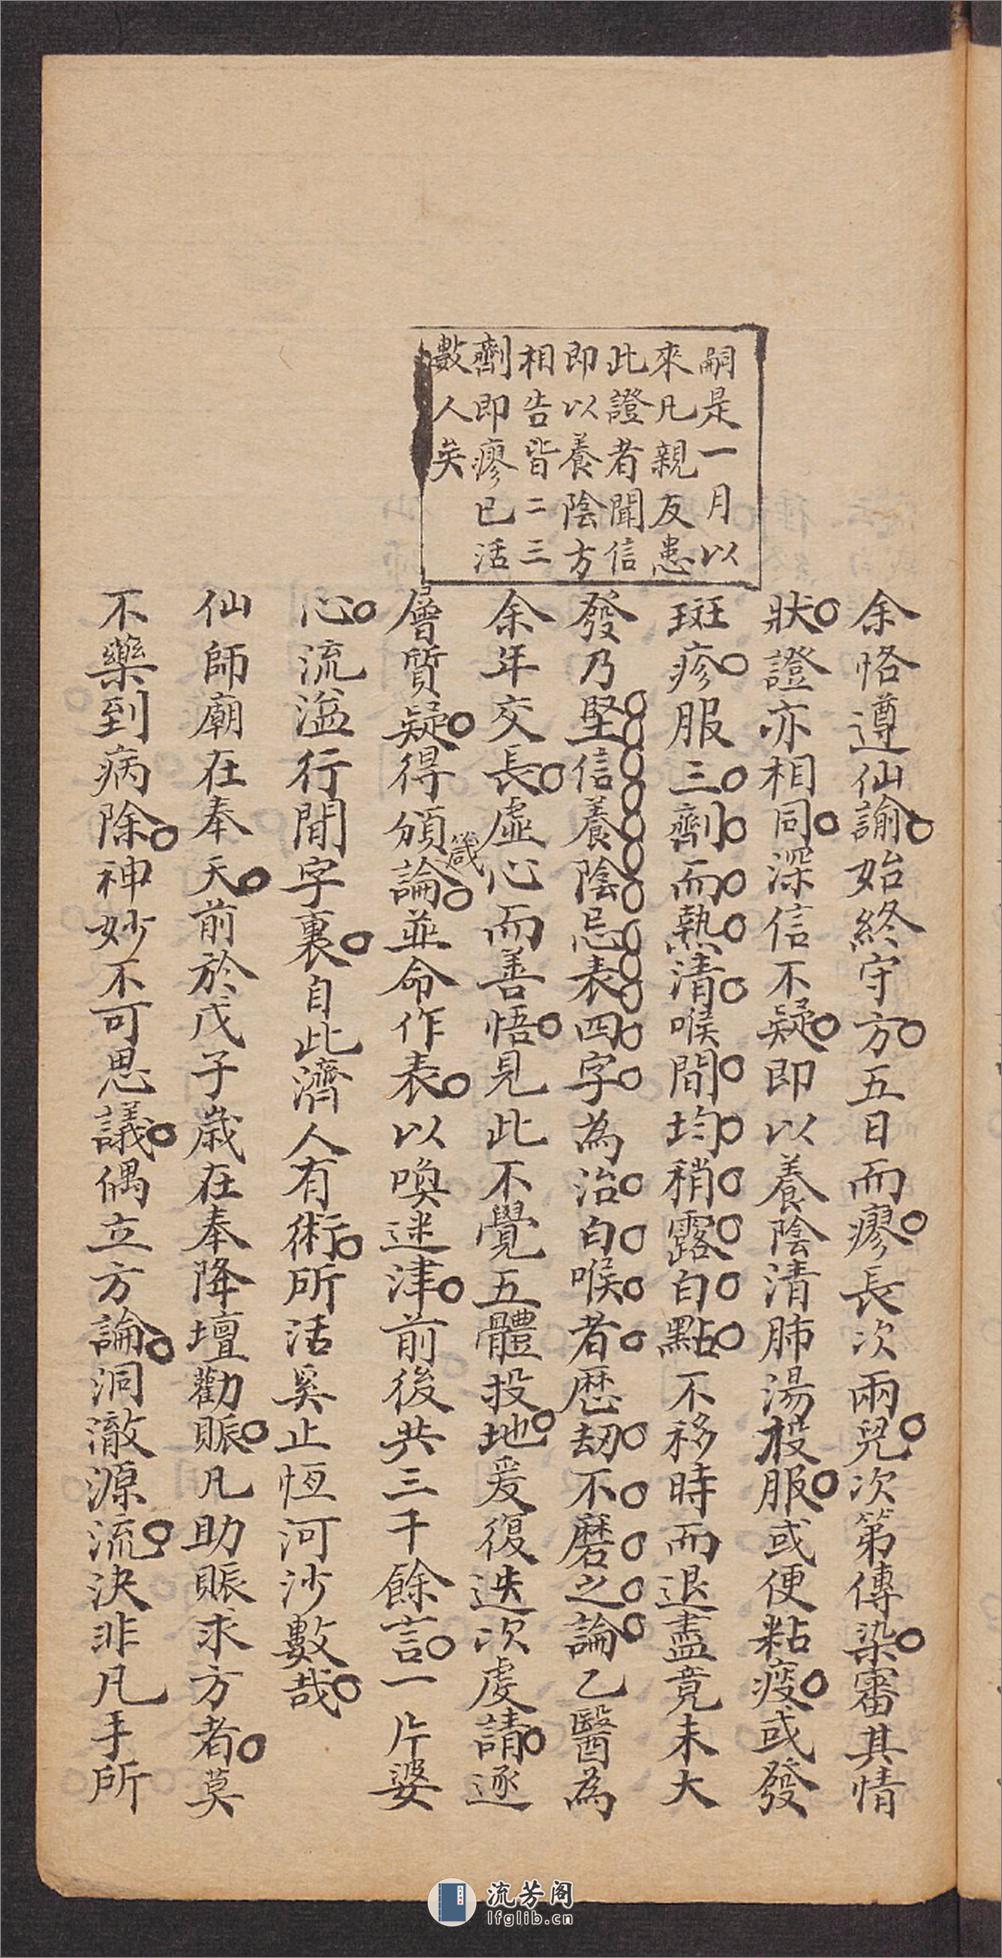 嗣是一月以
來凡親友患
此證者聞信
即以養陰方
相告皆二三
劑即瘳已活
數人矣
余恪遵仙諭始終守方五日而瘳長次兩兒次第傳染審其情
狀證亦相同深信不疑即以養陰清肺湯投服或便粘疫或發
斑疹服三劑而熱清喉間均稍露白點不移時而退盡竟未大
發乃堅信養陰忌表四字為治白喉者歷劫不磨之論乙醫為
余年交長虛心而善悟見此不覺五體投地爰復迭次虔請逐
層質疑得頒論箴並命作表以喚迷津前後共三千餘言一片婆
心流溢行間字裏自此濟人有術所活奚止恆河沙數哉
仙師廟在奉天前於戊子歲在奉降壇勸賑凡助賑求方者莫
不藥到病除神妙不可思議偶立方論洞澈源流決非凡手所
流芳阁
lfglib.cn